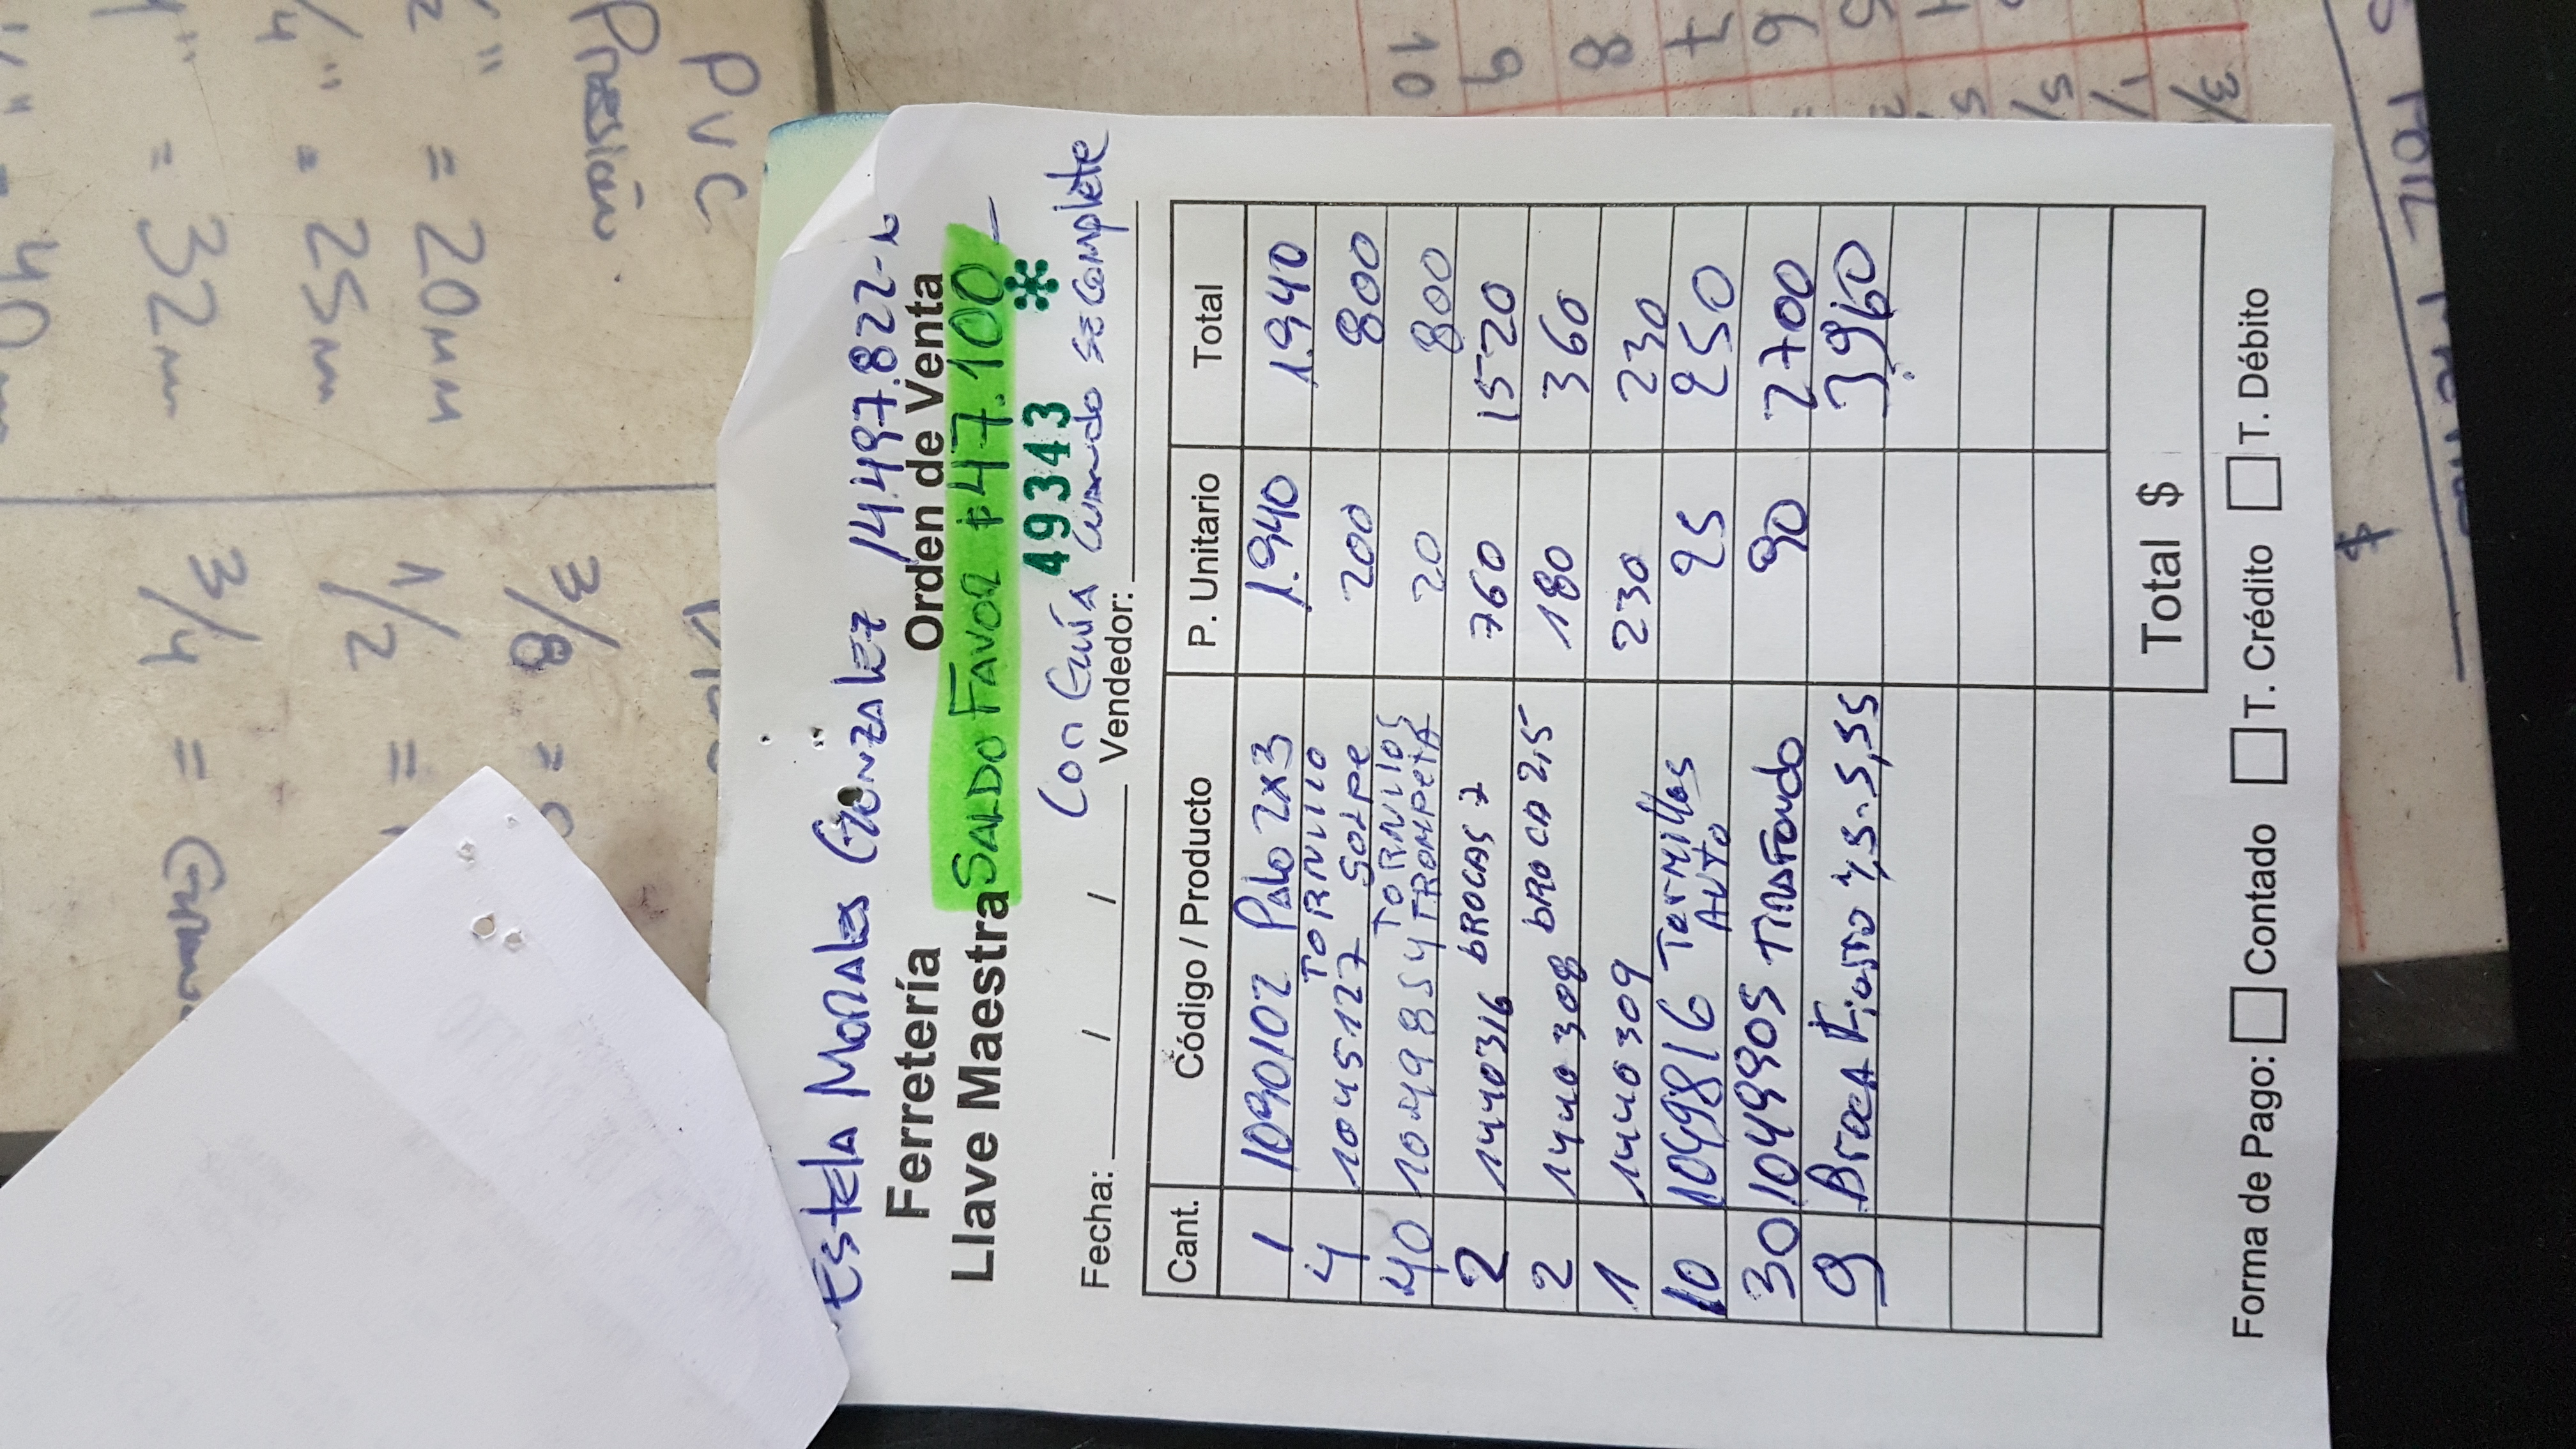 Estela Morales Gonzalez 14497.822-k
Ferretería
Llave Maestra
Orden de Venta
SALDO FAVOR $47.100
49343 *
Con Guía Cuando se complete
Fecha: / / Vendedor:
Cant. Código / Producto P. Unitario Total
1 1090102 Palo 2x3 1.940 1.940
4 1045127 TORNILLO GOLPE 200 800
40 1049854 TORNILLOS TROMPETA 20 800
2 1440316 BROCAS 7 760 1520
2 1440308 BROCA 2,5 180 360
1 1440309 230 230
10 1049816 Tornillos Auto 25 250
30 1049905 Tirafondo 90 2700
9 Broca Fierro 4,5-5,55 3.960
Total $
Forma de Pago: Contado T. Crédito T. Débito
PVC
Presión
= 20mm
= 25m
1" = 32m
3/4 =
1/2 =
3/8 =
6
7
8
9
10
$